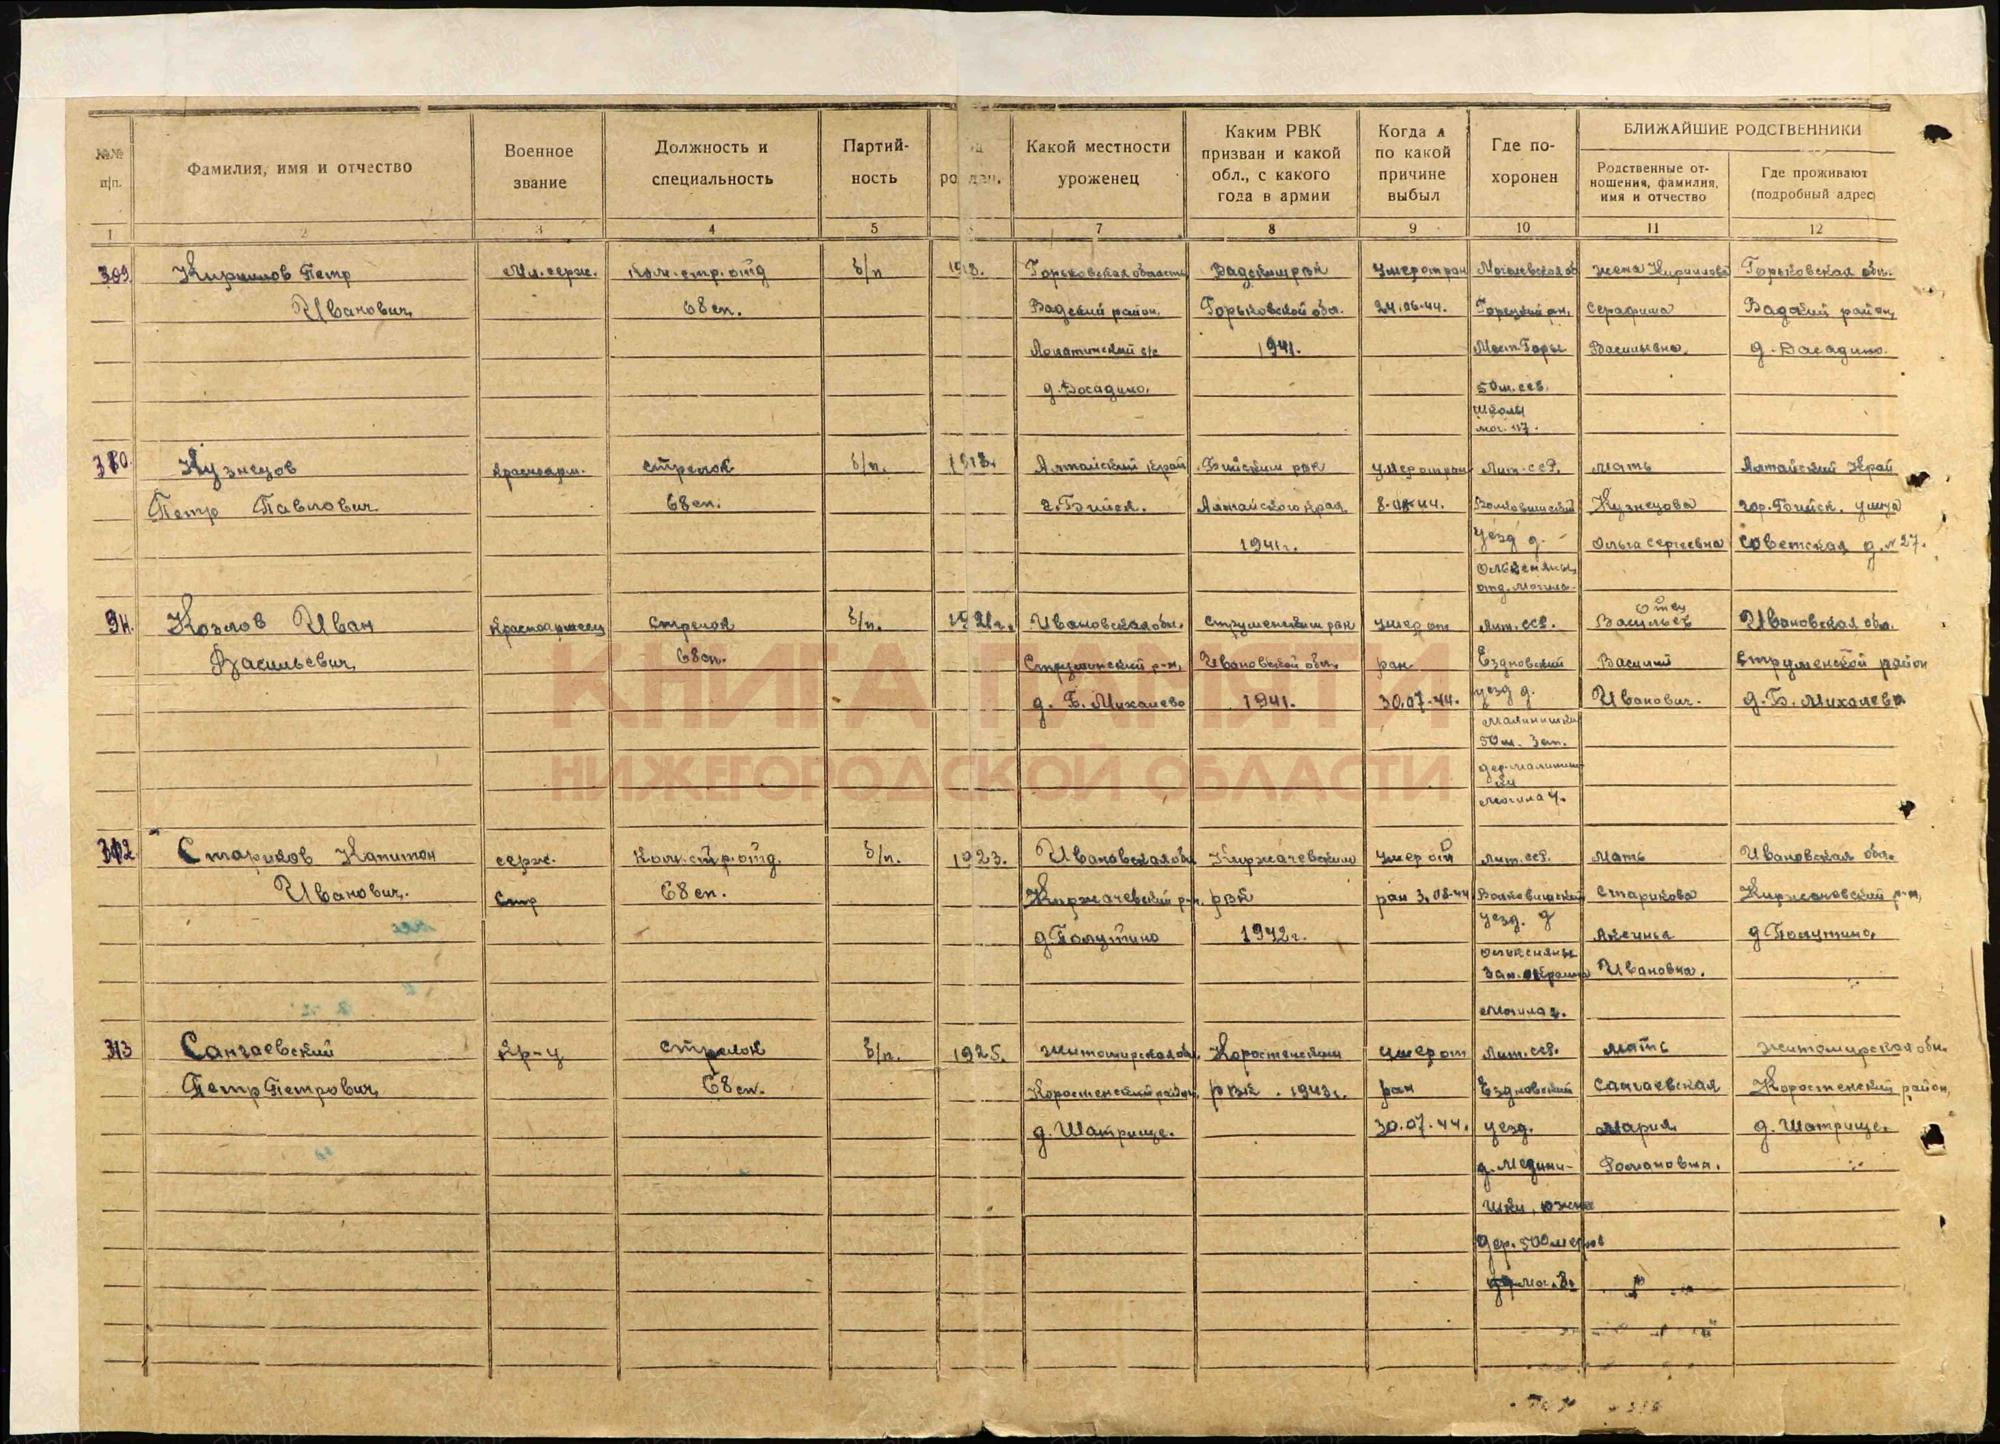 №№ п/п.
Фамилия, имя и отчество
Военное звание
Должность и специальность
Партий-ность
Какой местности уроженец
Каким РВК призван и какой обл., с какого года в армии
Когда и по какой причине выбыл
Где по-хоронен
БЛИЖАЙШИЕ РОДСТВЕННИКИ
Родственные от-ношения, фамилия, имя и отчество
Где проживают (подробный адрес)
1 2 3 4 5 6 7 8 9 10 11 12
309 Кириллов Петр Мл. серж. Ком. стр. отд б/п Горьковская область Вадским рвк умер от ран Могилевская об жена Кириллова Горьковская обл.
Иванович 68 сп. Вадский район, Горьковской обл. 24.06.44. Горецкий рн, Серафима Вадский район,
Лопатинский с/с 1941. Мест. Горы Васильевна.
50 м. сев.
школы
мог. 117.
310. Кузнецов Красноарм. стрелок б/п. 1913. Алтайский край Бийским рвк умер от ран Лит. сср. мать Алтайский край
Петр Павлович 68 сп. г. Бийск. Алтайского края Кузнецова гор. Бийск. улица
1941 г. уезд д. Ольга Сергеевна Советская д. № 27.
отд. могила.
Козлов Иван Красноармеец стрелок б/п. 1921 г. Ивановская обл. умер от Лит. сср. отец Васильев Ивановская обл.
Васильевич 68 сп. Ивановской обл. ран Ездновский Василий район
д. Б. Михалево 1941. 30.07.44. уезд д. Иванович. д. Б. Михалево
50 м. Зап.
могила 4.
312 Стариков Капитон серж. Ком. стр. отд. б/п. 1923. Ивановская обл Киржачевским умер от Лит. сср. мать Ивановская обл.
Иванович. стр 68 сп. Киржачевский р-н, рвк ран 3.08.44 уезд. д Старикова
д Полутино 1942 г. Аксинья д Полутино.
Ивановна.
313 Сангаевский кр-ц стрелок б/п. 1925. Житомирская обл. Коростенским умер от Лит. сср. мать Житомирская обл.
Петр Петрович 68 сп. Коростенский район, рвк. 1943 г. ран Ездновский Сангаевская Коростенский район,
д. Шатрище. 30.07.44. уезд. Мария д. Шатрище.
д. Медини- Романовна.
шки, южне
дер. 500 метров
мог. 8.
КНИГА ПАМЯТИ
НИЖЕГОРОДСКОЙ ОБЛАСТИ